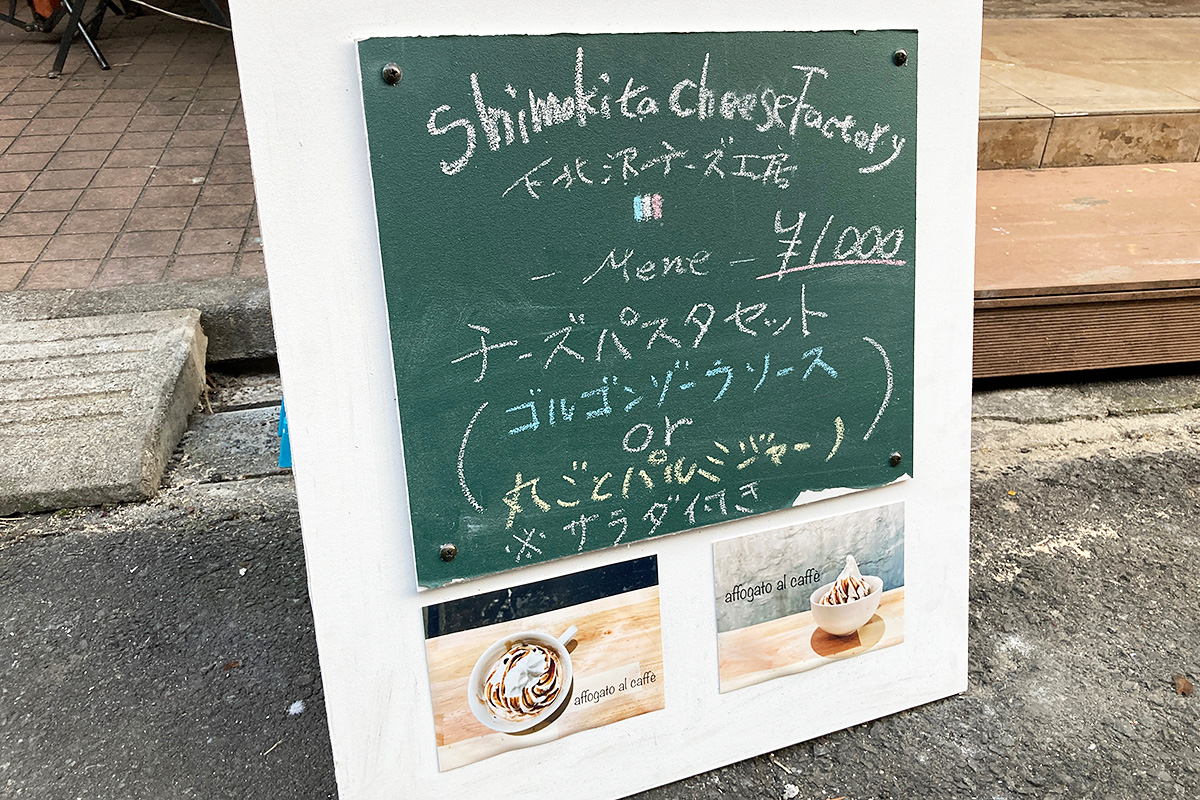 Shimokita Cheese Factory
下北沢チーズ工房
- Mene - ¥1000
チーズパスタセット
(ゴルゴンゾーラソース
or
丸ごとパルミジャーノ)
※サラダ付き
affogato al caffè
affogato al caffè